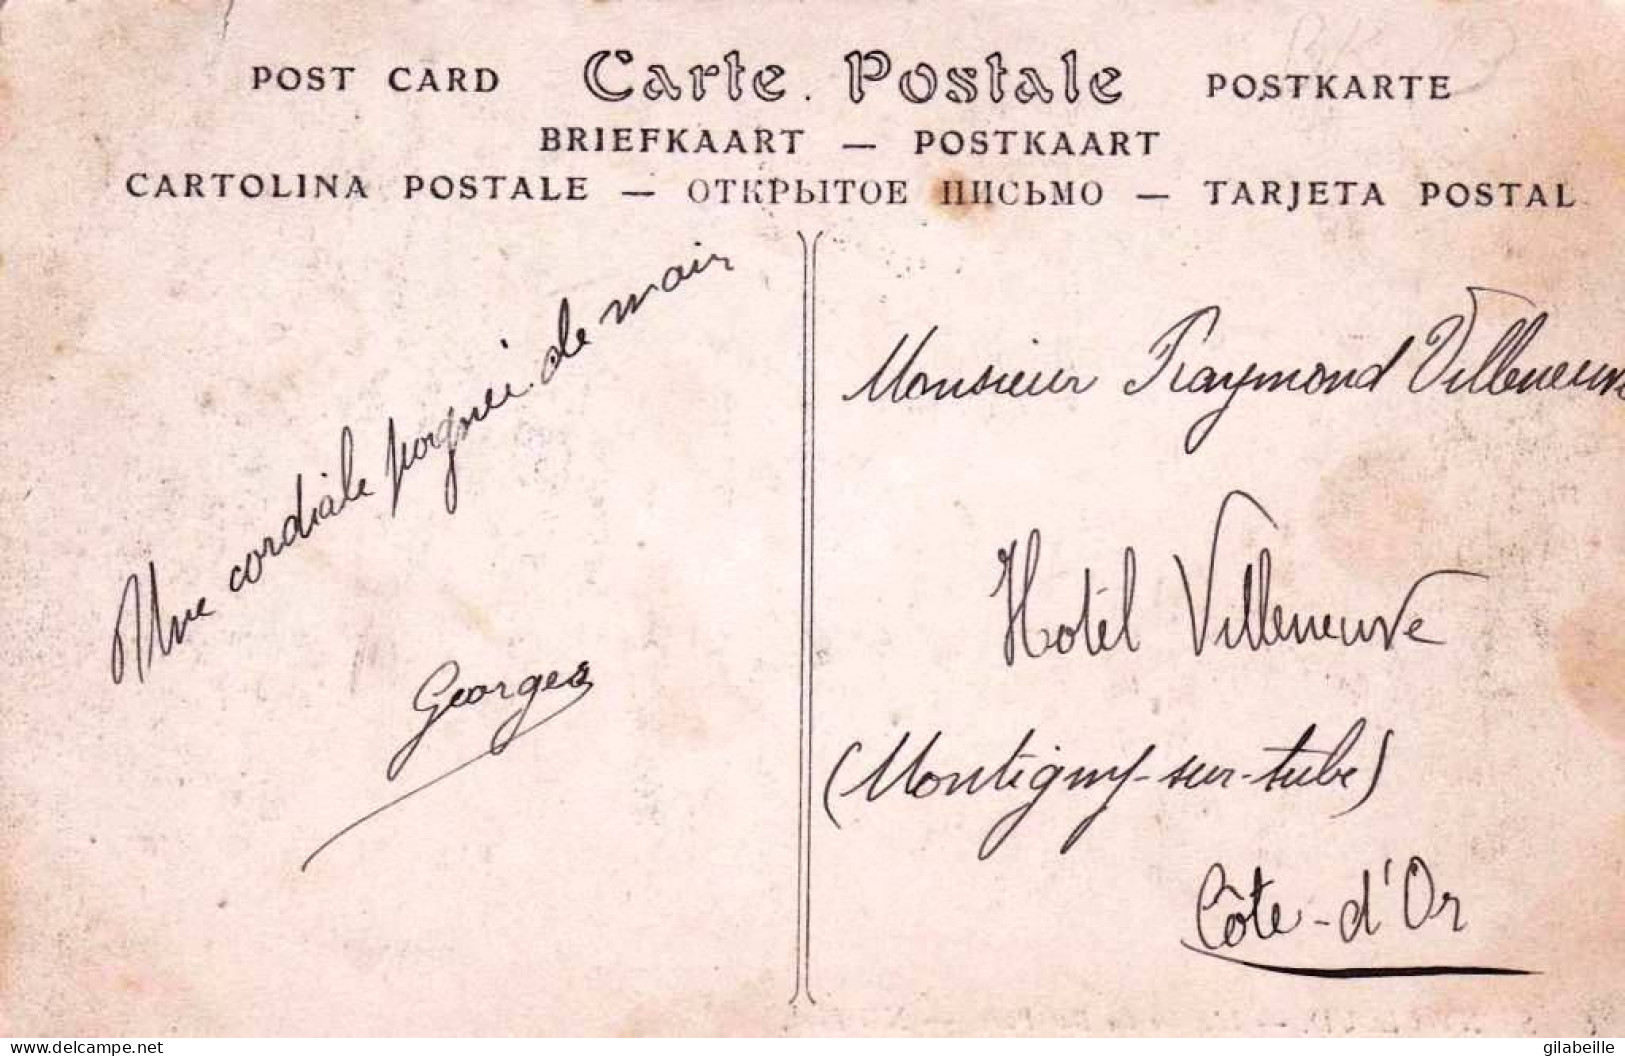 POST CARD Carte Postale POSTKARTE
BRIEFKAART — POSTKAART
CARTOLINA POSTALE — ОТКРЫТОЕ ПИСЬМО — TARJETA POSTAL
Une cordiale poignée de main
Georges
Monsieur Raymond Villeneuve
Hotêl Villeneuve
(Montigny-sur-tube)
Côte-d'Or
www.delcampe.net
gilabeille